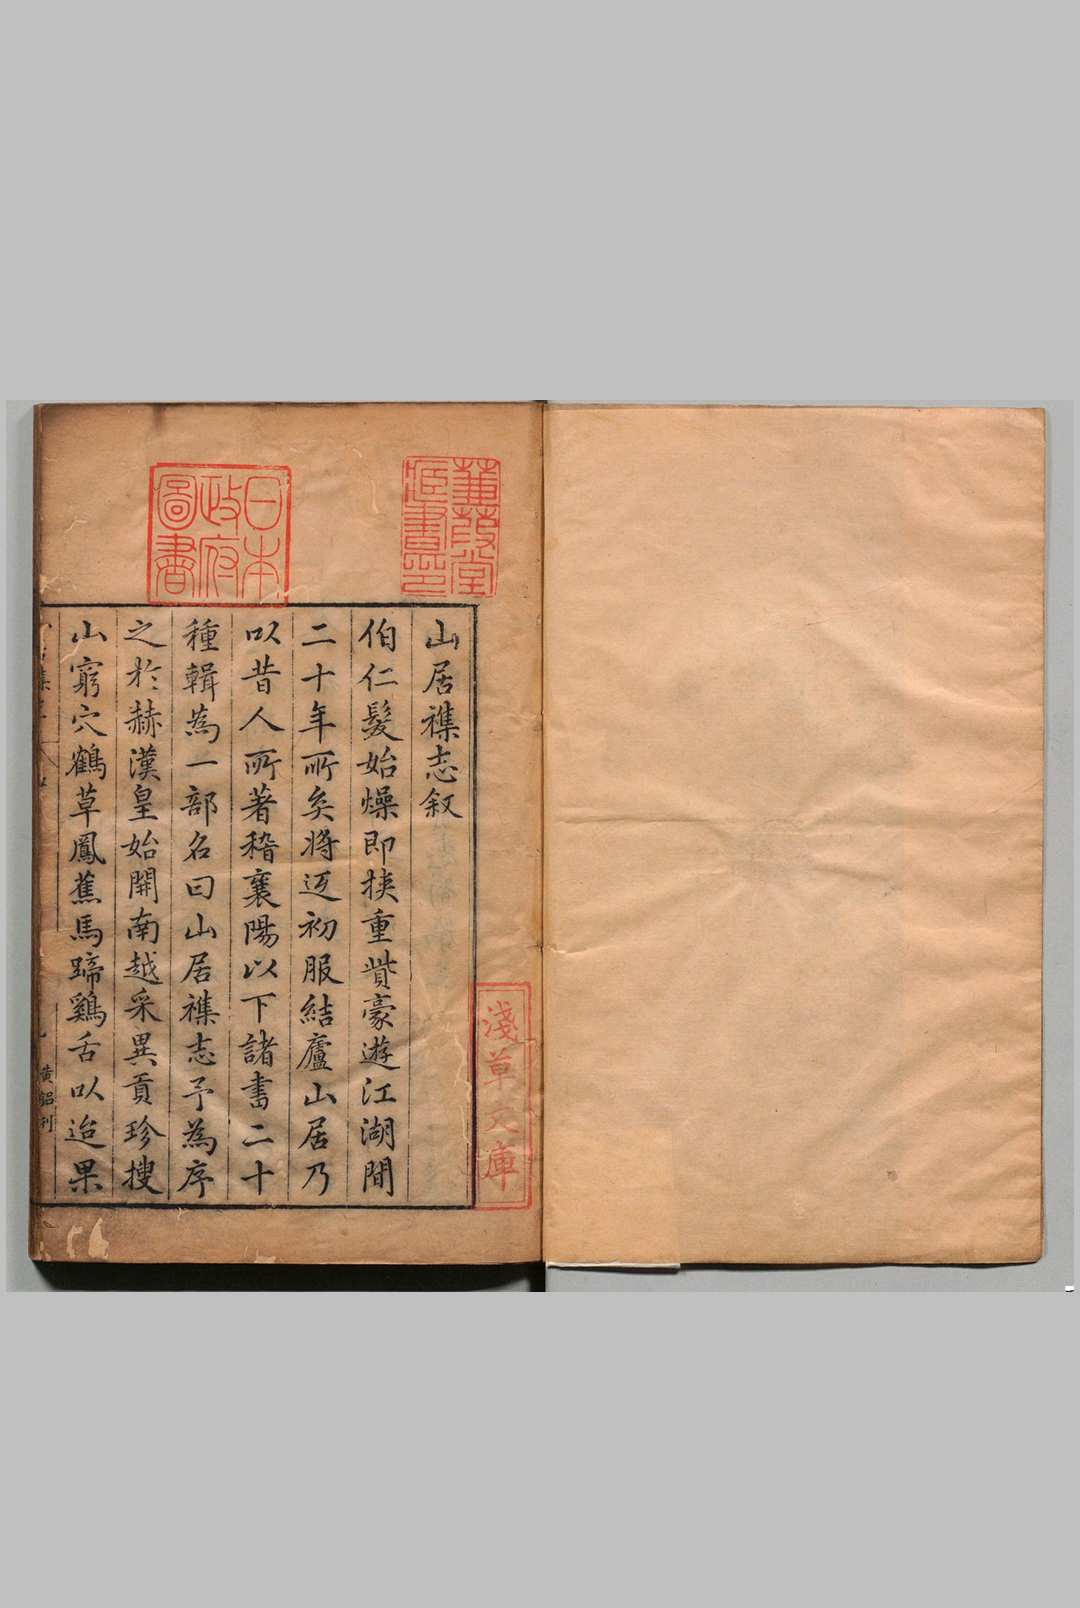 山居襍志叙
伯仁髮始燥即挾重貲豪遊江湖間
二十年所矣將返初服結廬山居乃
以昔人所著稽襄陽以下諸書二十
種輯為一部名曰山居襍志予為序
之於赫漢皇始開南越采異貢珍搜
山窮穴鶴草鳳蕉馬蹄鷄舌以迨果
黄鋁刊
蒹葭堂
藏書印
日本
政府
圖書
淺草文庫